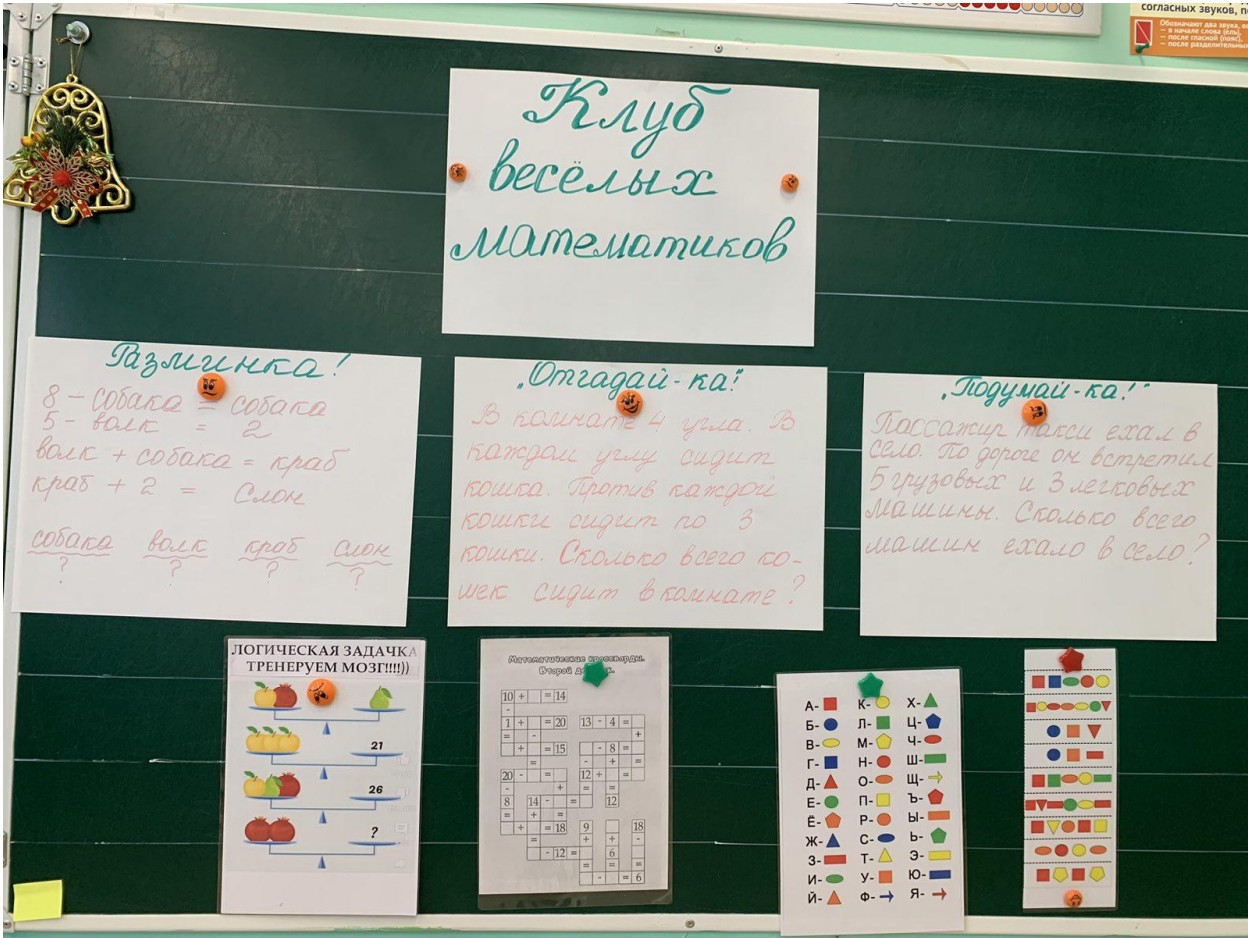 согласных звуков, п
Обозначают два звука, ес
— в начале слова (ель),
— после гласной (пояс),
— после разделительных
Клуб
весёлых
математиков
Разминка!
8 – собака = собака
5 – волк = 2
волк + собака = краб
краб + 2 = слон
собака волк краб слон
? ? ? ?
„Отгадай-ка!"
В комнате 4 угла. В
каждом углу сидит
кошка. Против каждой
кошки сидит по 3
кошки. Сколько всего ко-
шек сидит в комнате?
„Подумай-ка!"
Пассажир такси ехал в
село. По дороге он встретил
5 грузовых и 3 легковых
машины. Сколько всего
машин ехало в село?
ЛОГИЧЕСКАЯ ЗАДАЧКА
ТРЕНЕРУЕМ МОЗГ!!!!))
21
26
?
Математические кроссворды.
Второй
10 + = 14
-
1 + = 20 13 - 4 =
= - +
+ = 15 - 8 =
= - + =
20 - = 12 + =
- + = =
8 14 - = 12
= + =
+ = 18 9 18
= + + -
- 12 = 6
= = =
- = 6
А- К- Х-
Б- Л- Ц-
В- М- Ч-
Г- Н- Ш-
Д- О- Щ-
Е- П- Ъ-
Ё- Р- Ы-
Ж- С- Ь-
З- Т- Э-
И- У- Ю-
Й- Ф- Я-